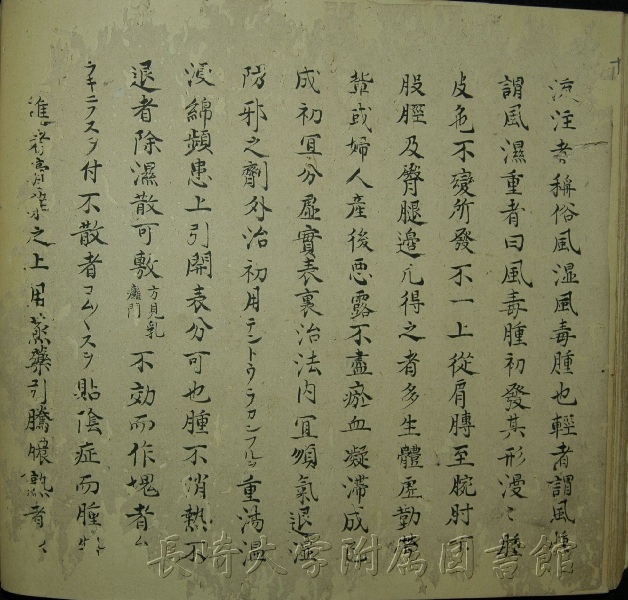 流注者稱俗風湿風毒腫也輕者謂風
謂風濕重者曰風毒腫初發其形漫〻
皮色不變所發不一上從肩膊至腕肘下
股脛及臀腿邊凢得之者多生體虚勤勞
或婦人産後悪露不盡瘀血凝滞成
成初宜分虚實表裏治法内宜順氣退湿
防邪之劑外治初用テントウラカンフルヲ重湯温
浸綿頻患上引開表分可也腫不消熱不
退者除濕散可敷方見乳癰門不効而作塊者
ラキニラスヲ付不散者コムヽスヲ貼陰症而腫
之上用蒸藥引騰醸熱者
長崎大学附属図書館